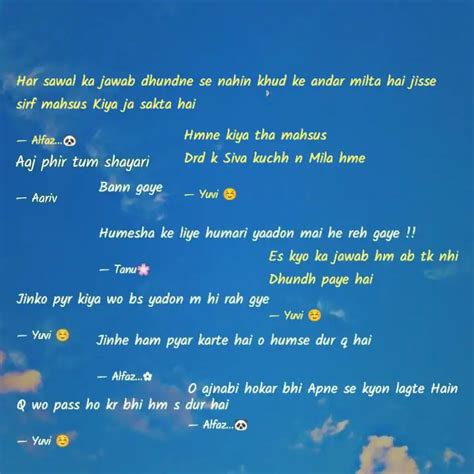 Har sawal ka jawab dhundne se nahin khud ke andar milta hai jisse
sirf mahsus Kiya ja sakta hai
— Alfaz...🐼
Hmne kiya tha mahsus
Drd k Siva kuchh n Mila hme
— Yuvi ☺️
Aaj phir tum shayari
Bann gaye
— Aariv
Humesha ke liye humari yaadon mai he reh gaye !!
— Tanu🌸
Es kyo ka jawab hm ab tk nhi
Dhundh paye hai
— Yuvi ☺️
Jinko pyr kiya wo bs yadon m hi rah gye
— Yuvi ☺️
Jinhe ham pyar karte hai o humse dur q hai
— Alfaz...✿
O ajnabi hokar bhi Apne se kyon lagte Hain
— Alfaz...🐼
Q wo pass ho kr bhi hm s dur hai
— Yuvi ☺️